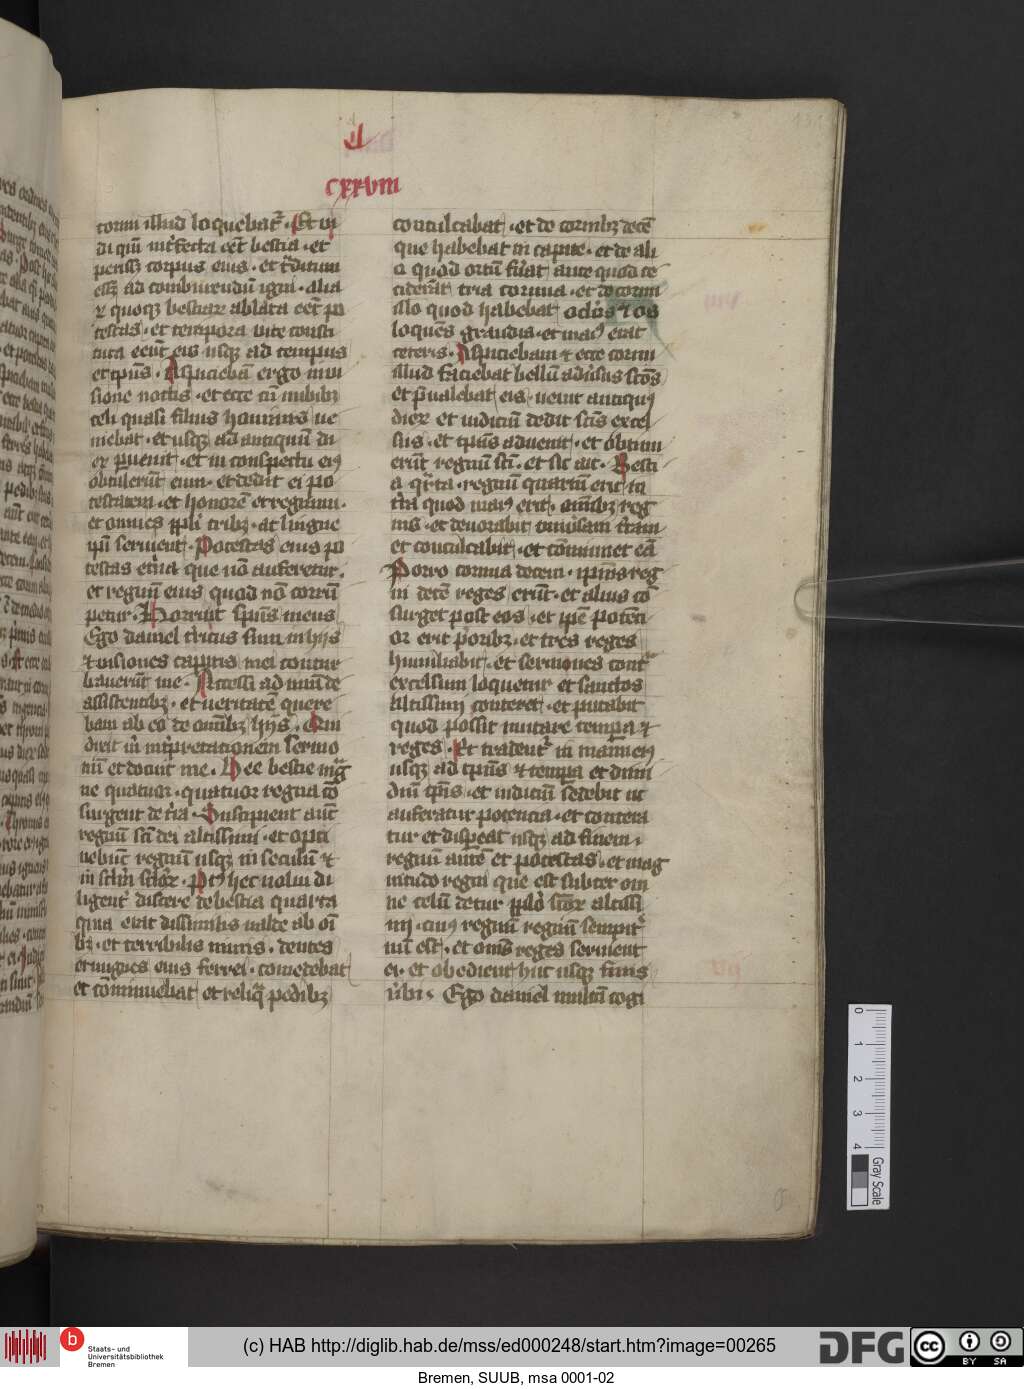 cxxviii
cornu illud loquebat᷑. Et vi
di qm̄ int̾fecta eēt bestia. et
periss; corpus eius. et t͛ditum
ess; ad comburendū igni. alia
ꝝ quoqꝫ bestiaꝝ ablata eēt po
testas. et tempora vite consti
tuta eēnt eis usqꝫ ad tempus
et tp̄us. Aspiciebā ergo in vi
sione noctis. et ecce cū nubibꝫ
celi quasi filius hominis ve
niebat. et usqꝫ ad antiquū di
eꝝ ꝑuenit. et in conspectu eiꝰ
obtulerūt eum. et dedit ei po
testatem. et honorē et regnum.
et omnes ppl̄i tribꝫ. ac lingue
ip̄i servient. Potestas eius po
testas et̾na que nō auferetur.
et regnū eius quod nō corrū
petur. Horruit sp̄us meus
Ego daniel t̾ritus sum in hijs
⁊ visiones capitis mei contur
baverūt me. Accessi ad unū de
assistentibꝫ. et veritatē quere
bam ab eo de om̄ibꝫ hijs. Qui
dixit m̄ int̾pretationem sermo
nū et docuit me. Hee bestie mag̾
ne quatuor. quatuor regna cō
surgent de t̾ra. Suscipient aūt
regnū sc̄i dei altissimi. et opti
nebūt regnū usqꝫ in seculū ⁊
in sc̄lm̄ sc̄loꝝ. Pꝰ hec volui di
ligent᷑ discere de bestia quarta
que erat dissimilis valde ab oī
bꝫ. et terribilis nimis. dentes
et ungues eius ferrei. comedebat
et cōminuebat et reliq̄ pedibꝫ
conculcabat. et de cornibꝫ decē
que habebat in capite. et de ali
o quod ortū fu̾at ante quod ce
ciderāt tria cornua. et de cornu
illo quod habebat oc̾los ⁊ os
loquēs grandia. et maiꝰ erat
ceteris. Aspiciebam ⁊ ecce cornu
illud faciebat bellū adu̾sus sc̄os
et p̄valebat eis. venit antiquꝰ
dieꝝ et iudiciū dedit sc̄is excel
sis. et tp̄us advenit. et obtinu
erūt regnū sc̄i. et sic ait. Besti
a q̾rta. regnū quartū erit in
t̾ra quod maiꝰ erit. om̄ibꝫ reg
nis. et devorabit univ̾sam t̾ram
et conculcabit. et cōminuet eā
Porro cornua decem. ipiꝰ reg
ni decē reges erūt. et alius cō
surget post eos. et ip̄e potēti
or erit p̾oribꝫ. et tres reges
humiliabit. et sermones cont̾
excelsum loquetur et sanctos
altissimi conteret. et putabit
quod possit mutare tempa ⁊
reges. Et tradent᷑ in manu eiꝰ
usqꝫ ad tp̄us ⁊ tempa et dimi
diū tp̄is. et iudiciū sedebit ut
auferatur potencia. et contera
tur et dispeat usqꝫ ad finem.
regnū autē et potestas. et mag
nitudo regni que est subter om
ne celū detur pplō sc̄oꝝ altissi
mi. cuiꝰ regnū regnū sempit᷑
nū est. et om̄s reges servient
ei. et obedient huc usqꝫ finis
v̾bi. Ego daniel multū cogi
0 1 2 3 4
Gray Scale
Staats- und
Universitätsbibliothek
Bremen
(c) HAB http://diglib.hab.de/mss/ed000248/start.htm?image=00265
DFG
cc BY SA
Bremen, SUUB, msa 0001-02